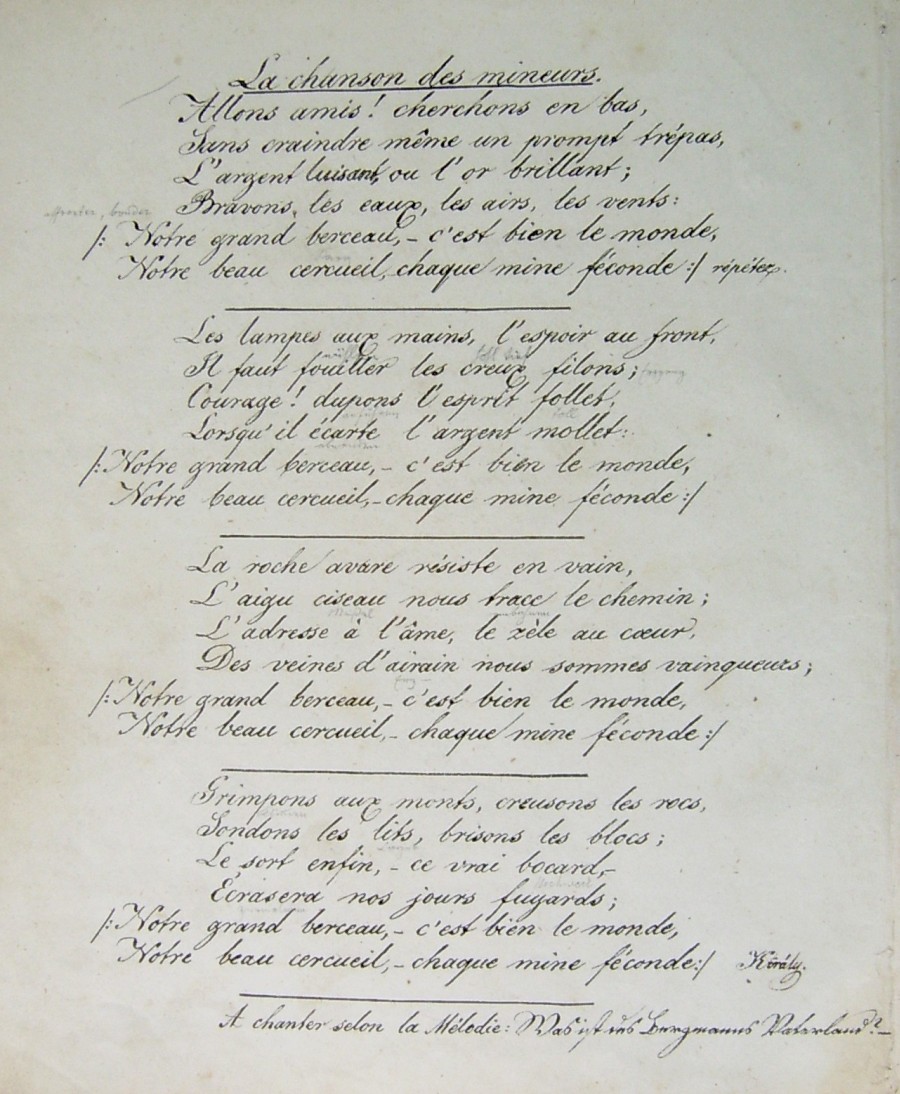 La chanson des mineurs.
Allons amis! cherchons en bas,
Sans craindre même un prompt trépas,
L'argent luisant, ou l'or brillant;
Bravons, les eaux, les airs, les vents:
/: Notre grand berceau, – c'est bien le monde,
Notre beau cercueil, chaque mine féconde :/ répétez.
Les lampes aux mains, l'espoir au front,
Il faut fouiller les creux filons;
Courage! dupons l'esprit follet,
Lorsqu'il écarte l'argent mollet:
/: Notre grand berceau, – c'est bien le monde,
Notre beau cercueil, – chaque mine féconde :/
La roche avare résiste en vain,
L'aigu ciseau nous trace le chemin;
L'adresse à l'âme, le zèle au cœur,
Des veines d'airain nous sommes vainqueurs;
/: Notre grand berceau, – c'est bien le monde,
Notre beau cercueil, – chaque mine féconde :/
Grimpons aux monts, creusons les rocs,
Sondons les lits, brisons les blocs;
Le sort enfin, – ce vrai bocard, –
Écrasera nos jours fuyards;
/: Notre grand berceau, – c'est bien le monde,
Notre beau cercueil, – chaque mine féconde :/ Király.
A chanter selon la Mélodie: Was ist des Bergmanns Vaterland? –